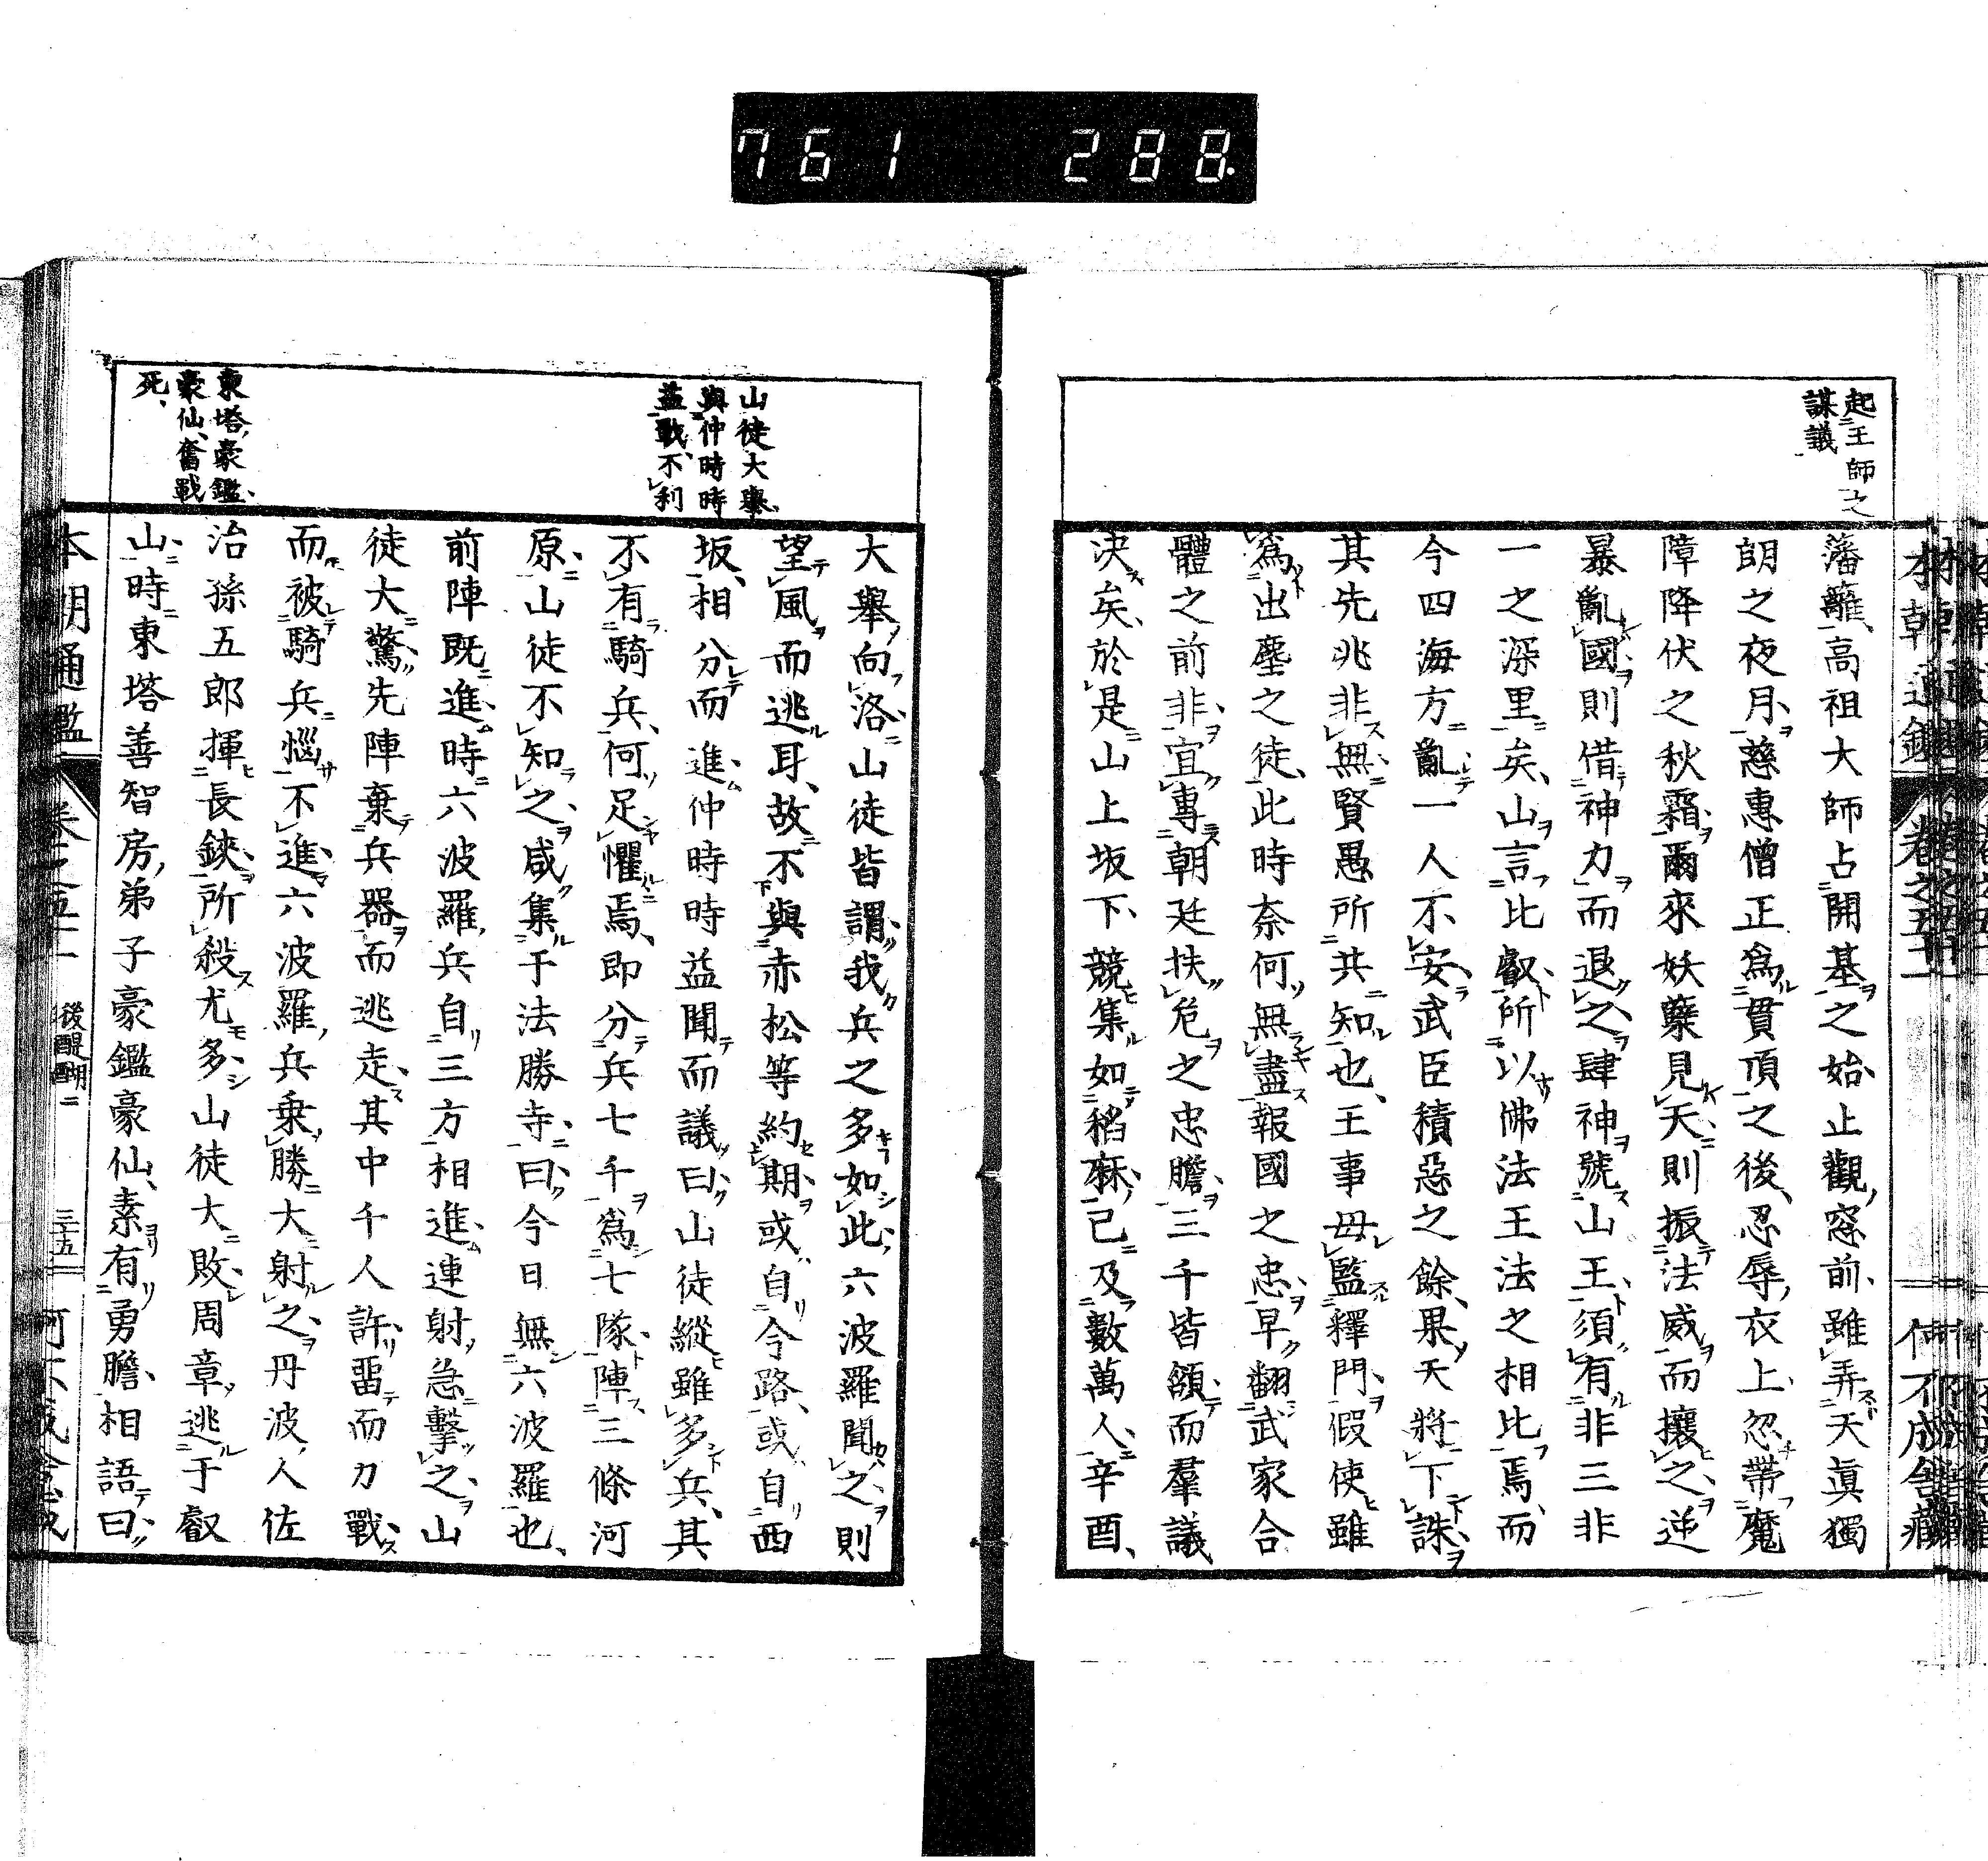 761 288
起王師之
謀議
藩籬高祖大師占開基之始止觀窓前雖弄天眞獨
朗之夜月慈惠僧正爲貫頂之後忍辱衣上忽帶魔
障降伏之秋霜爾來妖孽見天則振法威而攘之逆
暴亂國則借神力而退之肆神號山王須有非三非
一之深里矣山言比叡所以佛法王法之相比焉而
今四海方亂一人不安武臣積惡之餘果天將下誅
其先兆非無賢愚所共知也王事毋監釋門假使雖
爲出塵之徒此時奈何無盡報國之忠早翻武家合
體之前非宜專朝廷扶危之忠膽三千皆頷而羣議
決矣於是山上坂下競集如稻麻已及數萬人辛酉
山徒大擧
與仲時時
益戰不利
東塔豪鑑
豪仙奮戰
死
大擧向洛山徒皆謂我兵之多如此六波羅聞之則
望風而逃耳故不與赤松等約期或自今路或自西
坂相分而進仲時時益聞而議曰山徒縱雖多兵其
不有騎兵何足懼焉即分兵七千爲七隊陣三條河
原山徒不知之咸集于法勝寺曰今日無六波羅也
前陣既進時六波羅兵自三方相進連射急擊之山
徒大驚先陣棄兵器而逃走其中千人許畱而力戰
而被騎兵惱不進六波羅兵乘勝大射之丹波人佐
治孫五郎揮長鋏所殺尤多山徒大敗周章逃于叡
山時東塔善智房弟子豪鑑豪仙素有勇膽相語曰
本朝通鑑 卷之五十一 後醍醐二 三十五